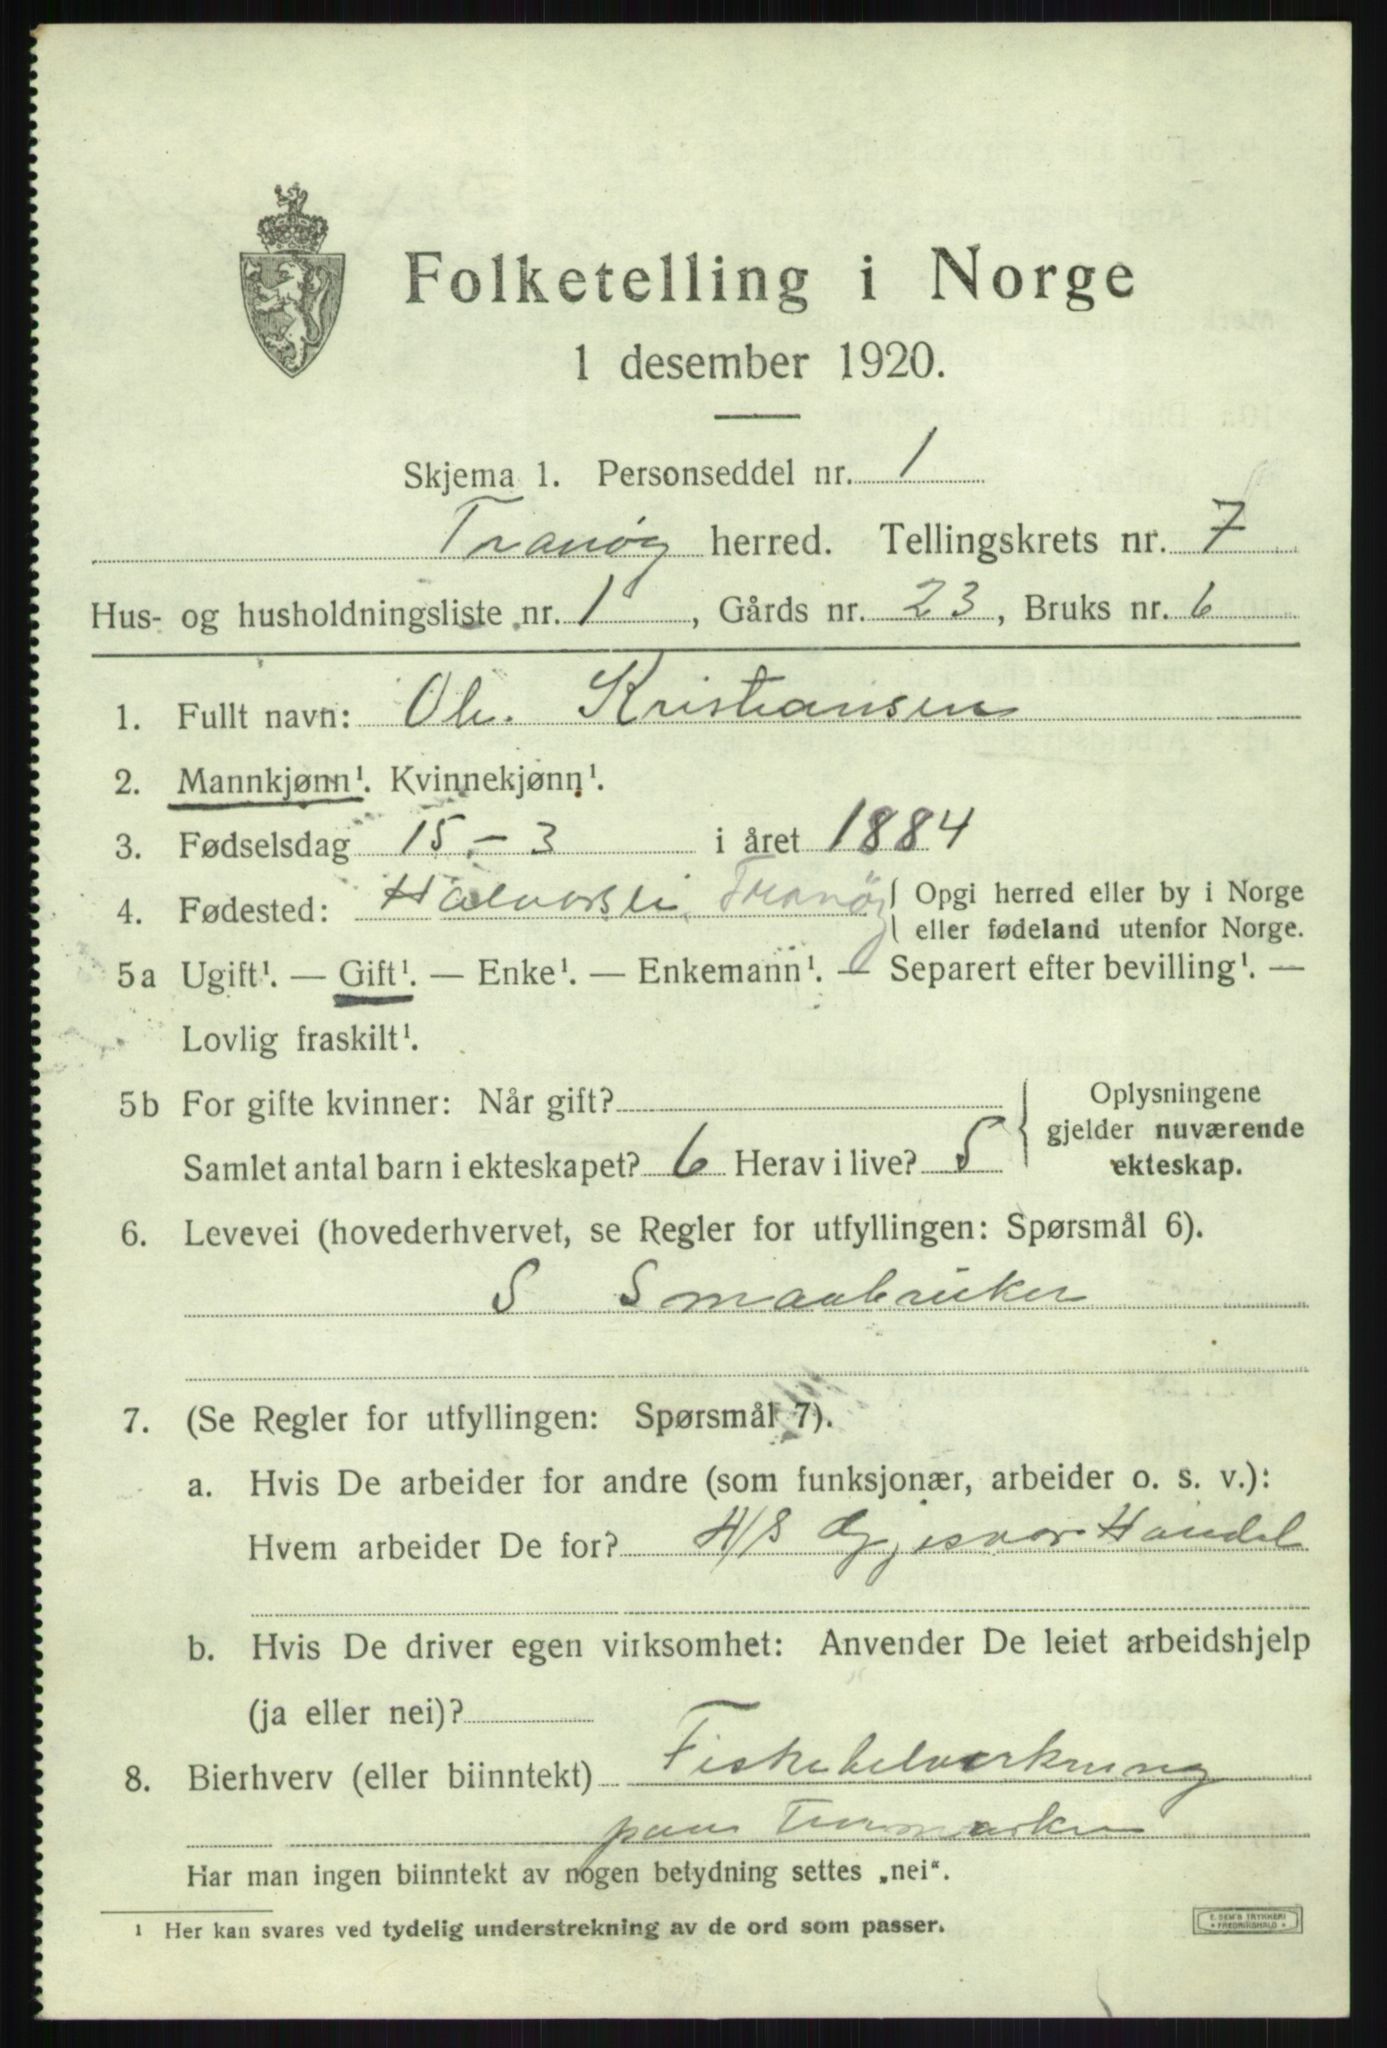 Folketelling i Norge
1 desember 1920.
Skjema 1. Personseddel nr. 1
Tranøy herred. Tellingskrets nr. 7
Hus- og husholdningsliste nr. 1, Gårds nr. 23, Bruks nr. 6
1. Fullt navn: Ole Kristiansen
2. Mannkjønn¹. Kvinnekjønn¹.
3. Fødselsdag 15 - 3 i året 1884
4. Fødested: Tranøy { Opgi herred eller by i Norge
eller fødeland utenfor Norge.
5a Ugift¹. — Gift¹. — Enke¹. — Enkemann¹. — Separert efter bevilling¹. —
Lovlig fraskilt¹.
5b For gifte kvinner: Når gift? { Oplysningene
gjelder nuværende
ekteskap.
Samlet antal barn i ekteskapet? 6 Herav i live? 5
6. Levevei (hovederhvervet, se Regler for utfyllingen: Spørsmål 6).
S Smaabruker
7. (Se Regler for utfyllingen: Spørsmål 7).
a. Hvis De arbeider for andre (som funksjonær, arbeider o. s. v.):
Hvem arbeider De for? A/S Gjesvær Handel
b. Hvis De driver egen virksomhet: Anvender De leiet arbeidshjelp
(ja eller nei)?
8. Bierhverv (eller biinntekt) Fisketilvirkning
paa Finmarken
Har man ingen biinntekt av nogen betydning settes „nei“.
¹ Her kan svares ved tydelig understrekning av de ord som passer.
E. SEM'S TRYKKERI
FREDRIKSHALD